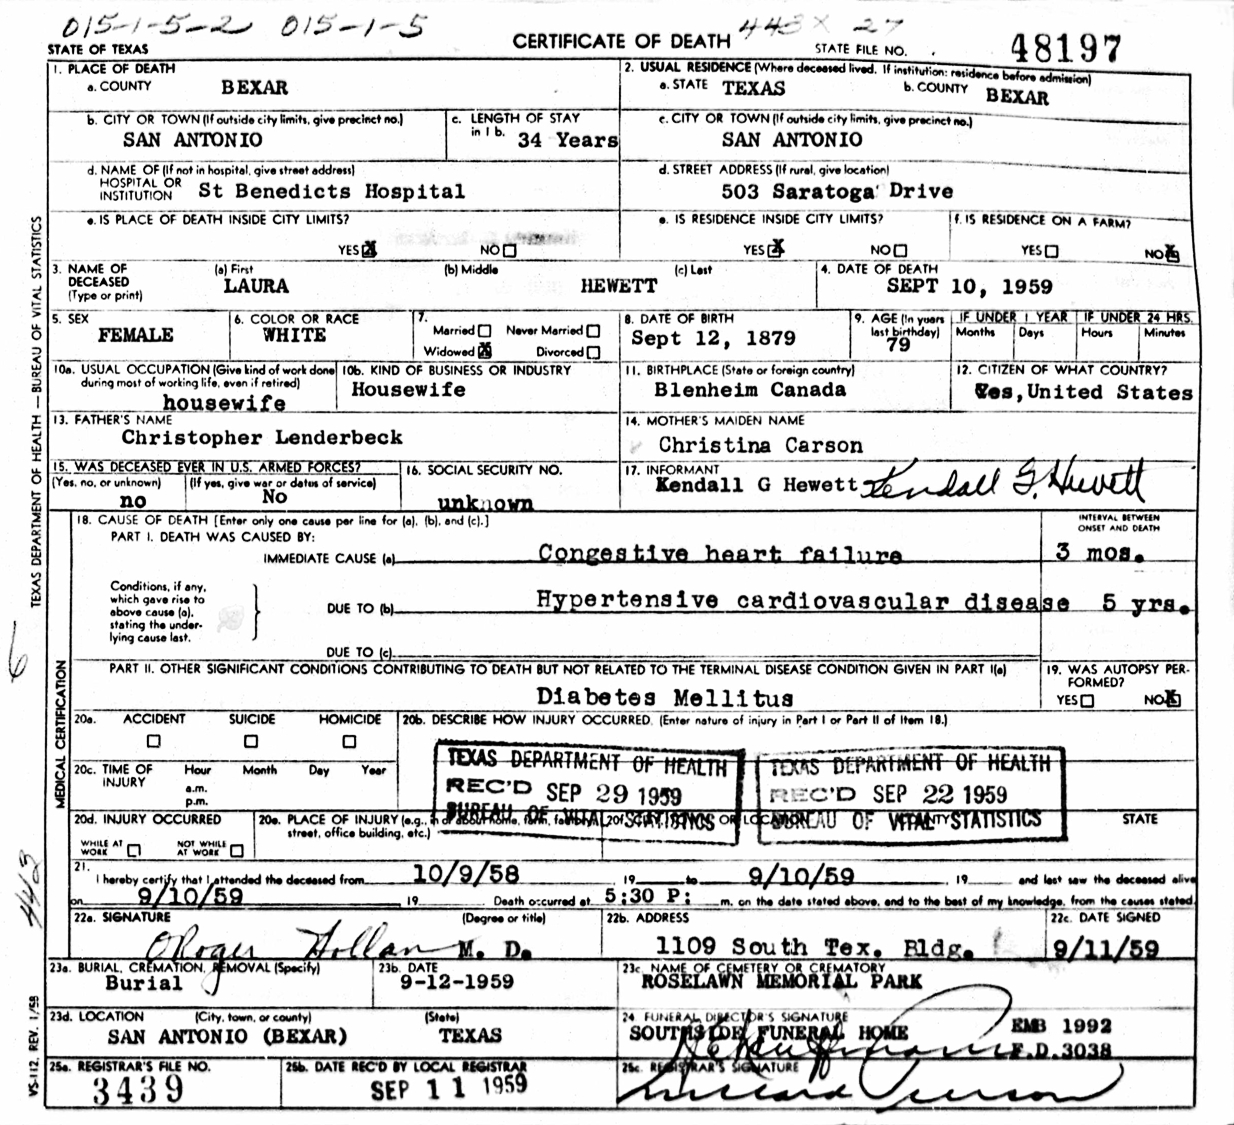 015-1-5-2 015-1-5 443X 27
STATE OF TEXAS CERTIFICATE OF DEATH STATE FILE NO. 48197
1. PLACE OF DEATH
a. COUNTY BEXAR
2. USUAL RESIDENCE (Where deceased lived. If institution: residence before admission)
a. STATE TEXAS b. COUNTY BEXAR
b. CITY OR TOWN (If outside city limits, give precinct no.)
SAN ANTONIO
c. LENGTH OF STAY
in 1 b. 34 Years
c. CITY OR TOWN (If outside city limits, give precinct no.)
SAN ANTONIO
d. NAME OF (If not in hospital, give street address)
HOSPITAL OR
INSTITUTION St Benedicts Hospital
d. STREET ADDRESS (If rural, give location)
503 Saratoga Drive
e. IS PLACE OF DEATH INSIDE CITY LIMITS?
YES X NO
e. IS RESIDENCE INSIDE CITY LIMITS?
YES X NO
f. IS RESIDENCE ON A FARM?
YES NO X
3. NAME OF
DECEASED
(Type or print)
(a) First (b) Middle (c) Last
LAURA HEWETT
4. DATE OF DEATH
SEPT 10, 1959
5. SEX
FEMALE
6. COLOR OR RACE
WHITE
7.
Married Never Married
Widowed X Divorced
8. DATE OF BIRTH
Sept 12, 1879
9. AGE (In years
last birthday)
79
IF UNDER 1 YEAR IF UNDER 24 HRS.
Months Days Hours Minutes
10a. USUAL OCCUPATION (Give kind of work done
during most of working life, even if retired)
housewife
10b. KIND OF BUSINESS OR INDUSTRY
Housewife
11. BIRTHPLACE (State or foreign country)
Blenheim Canada
12. CITIZEN OF WHAT COUNTRY?
Yes, United States
13. FATHER'S NAME
Christopher Lenderbeck
14. MOTHER'S MAIDEN NAME
Christina Carson
15. WAS DECEASED EVER IN U.S. ARMED FORCES?
(Yes, no, or unknown) (If yes, give war or dates of service)
no No
16. SOCIAL SECURITY NO.
unknown
17. INFORMANT
Kendall G Hewett Kendall G. Hewett
18. CAUSE OF DEATH [Enter only one cause per line for (a), (b), and (c).]
PART I. DEATH WAS CAUSED BY:
IMMEDIATE CAUSE (a) Congestive heart failure
INTERVAL BETWEEN
ONSET AND DEATH
3 mos.
Conditions, if any,
which gave rise to
above cause (a),
stating the under-
lying cause last.
DUE TO (b) Hypertensive cardiovascular disease 5 yrs.
DUE TO (c)
PART II. OTHER SIGNIFICANT CONDITIONS CONTRIBUTING TO DEATH BUT NOT RELATED TO THE TERMINAL DISEASE CONDITION GIVEN IN PART I(a)
Diabetes Mellitus
19. WAS AUTOPSY PER-
FORMED?
YES NO X
20a. ACCIDENT SUICIDE HOMICIDE
20b. DESCRIBE HOW INJURY OCCURRED. (Enter nature of injury in Part I or Part II of Item 18.)
20c. TIME OF
INJURY
Hour Month Day Year
a.m.
p.m.
TEXAS DEPARTMENT OF HEALTH
REC'D SEP 29 1959
BUREAU OF VITAL STATISTICS
TEXAS DEPARTMENT OF HEALTH
REC'D SEP 22 1959
BUREAU OF VITAL STATISTICS
20d. INJURY OCCURRED
WHILE AT
WORK
NOT WHILE
AT WORK
20e. PLACE OF INJURY (e.g., in or about home, farm, factory,
street, office building, etc.)
20f. OR LOCATION COUNTY STATE
21.
I hereby certify that I attended the deceased from 10/9/58 19 to 9/10/59, 19 and last saw the deceased alive
on 9/10/59 19 Death occurred at 5:30 P: m. on the date stated above, and to the best of my knowledge, from the causes stated.
22a. SIGNATURE (Degree or title)
O Roger Hollan M. D.
22b. ADDRESS
1109 South Tex. Bldg.
22c. DATE SIGNED
9/11/59
23a. BURIAL, CREMATION, REMOVAL (Specify)
Burial
23b. DATE
9-12-1959
23c. NAME OF CEMETERY OR CREMATORY
ROSELAWN MEMORIAL PARK
23d. LOCATION (City, town, or county) (State)
SAN ANTONIO (BEXAR) TEXAS
24 FUNERAL DIRECTOR'S SIGNATURE
SOUTHSIDE FUNERAL HOME EMB 1992
F.D. 3038
25a. REGISTRAR'S FILE NO.
3439
25b. DATE REC'D BY LOCAL REGISTRAR
SEP 11 1959
25c. REGISTRAR'S SIGNATURE
TEXAS DEPARTMENT OF HEALTH — BUREAU OF VITAL STATISTICS
MEDICAL CERTIFICATION
6
443
VS-112 REV. 1/58